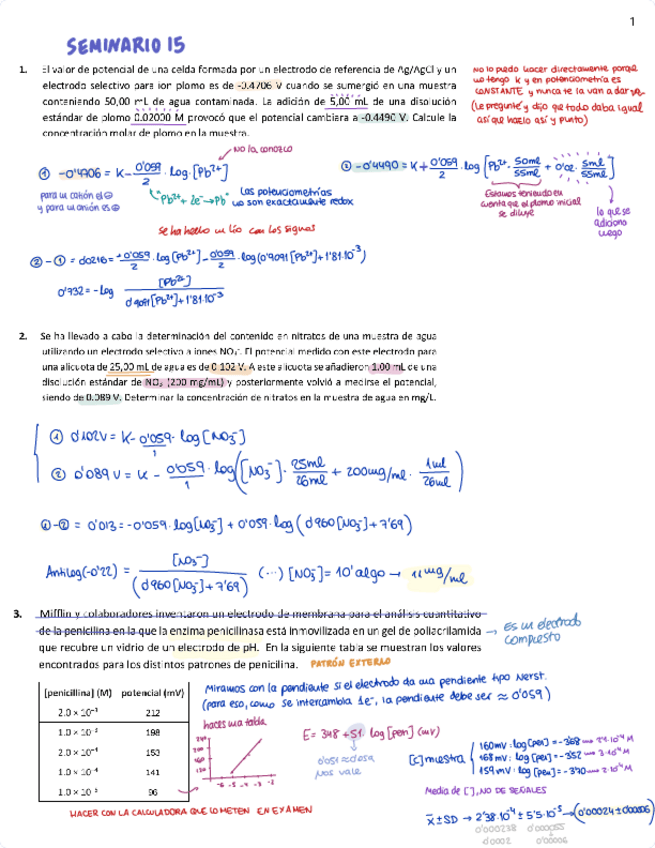 1
SEMINARIO 15
1. El valor de potencial de una celda formada por un electrodo de referencia de Ag/AgCl y un
electrodo selectivo para ion plomo es de -0.4706 V cuando se sumergió en una muestra
conteniendo 50,00 mL de agua contaminada. La adición de 5,00 mL de una disolución
estándar de plomo 0.02000 M provocó que el potencial cambiara a -0.4490 V. Calcule la
concentración molar de plomo en la muestra.
No lo puedo hacer directamente porque
no tengo K y en potenciometría es
CONSTANTE y nunca te la van a dar
(Le pregunté y dijo que todo daba igual
así que hazlo así y punto)
NO la conozco
① -0'4706 = K - 0'059/2 · log · [Pb2+]
② -0'4490 = K + 0'059/2 · log [Pb2+ · 50ml/55ml + 0'02 · 5ml/55ml]
para un catión el ⊕
y para un anión es ⊖
"Pb2+ + 2e- → Pb"
Las potenciometrías
no son exactamente redox
Estamos teniendo en
cuenta que el plomo inicial
se diluye
lo que se
adiciona
luego
se ha hecho un lío con los signos
② - ① = 0'0216 = +0'059/2 · log [Pb2+] - 0'059/2 · log (0'9091 [Pb2+] + 1'81·10-3)
0'732 = - log [Pb2+] / 0'9091 [Pb2+] + 1'81·10-3
2. Se ha llevado a cabo la determinación del contenido en nitratos de una muestra de agua
utilizando un electrodo selectivo a iones NO3-. El potencial medido con este electrodo para
una alícuota de 25,00 mL de agua es de 0.102 V. A este alícuota se añadieron 1.00 mL de una
disolución estándar de NO3 (200 mg/mL) y posteriormente volvió a medirse el potencial,
siendo de 0.089 V. Determinar la concentración de nitratos en la muestra de agua en mg/L.
① 0'102V = K - 0'059/1 · log [NO3-]
② 0'089 V = K - 0'059/1 · log ([NO3-] · 25ml/26ml + 200mg/ml · 1ml/26ml)
①-② = 0'013 = -0'059 · log [NO3-] + 0'059 · log (0'960 [NO3-] + 7'69)
Antilog (-0'22) = [NO3-] / (0'960 [NO3-] + 7'69) (···) [NO3-] = 10'algo → 11 mg/ml
3. Mifflin y colaboradores inventaron un electrodo de membrana para el análisis cuantitativo
de la penicilina en la que la enzima penicilinasa está inmovilizada en un gel de poliacrilamida
→ es un electrodo
compuesto
que recubre un vidrio de un electrodo de pH. En la siguiente tabla se muestran los valores
encontrados para los distintos patrones de penicilina. PATRÓN EXTERNO
[penicillina] (M) potencial (mV)
2.0 × 10-2 212
198
153
1.0 × 10-4 141
96
Miramos con la pendiente si el electrodo da una pendiente tipo Nerst.
(para eso, como se intercambia 1e-, la pendiente debe ser ≈ 0'059)
haces una tabla
E = 348 + 51 log [pen] (mV)
0'051 ≈ 0'059
nos vale
[c] muestra
160mV : log [pen] = -3'68
168 mV : log [pen] = -3'52 → 3·10-4 M
159 mV : log [pen] = -3'70 → 2·10-4 M
Media de [ ], NO DE SEÑALES
x̄ ± SD → 2'38·10-4 ± 5'5·10-5 → (0'00024 ± 0'00006)
0'000238 0'000055
0'00006
HACER CON LA CALCULADORA QUE LO METEN EN EXAMEN